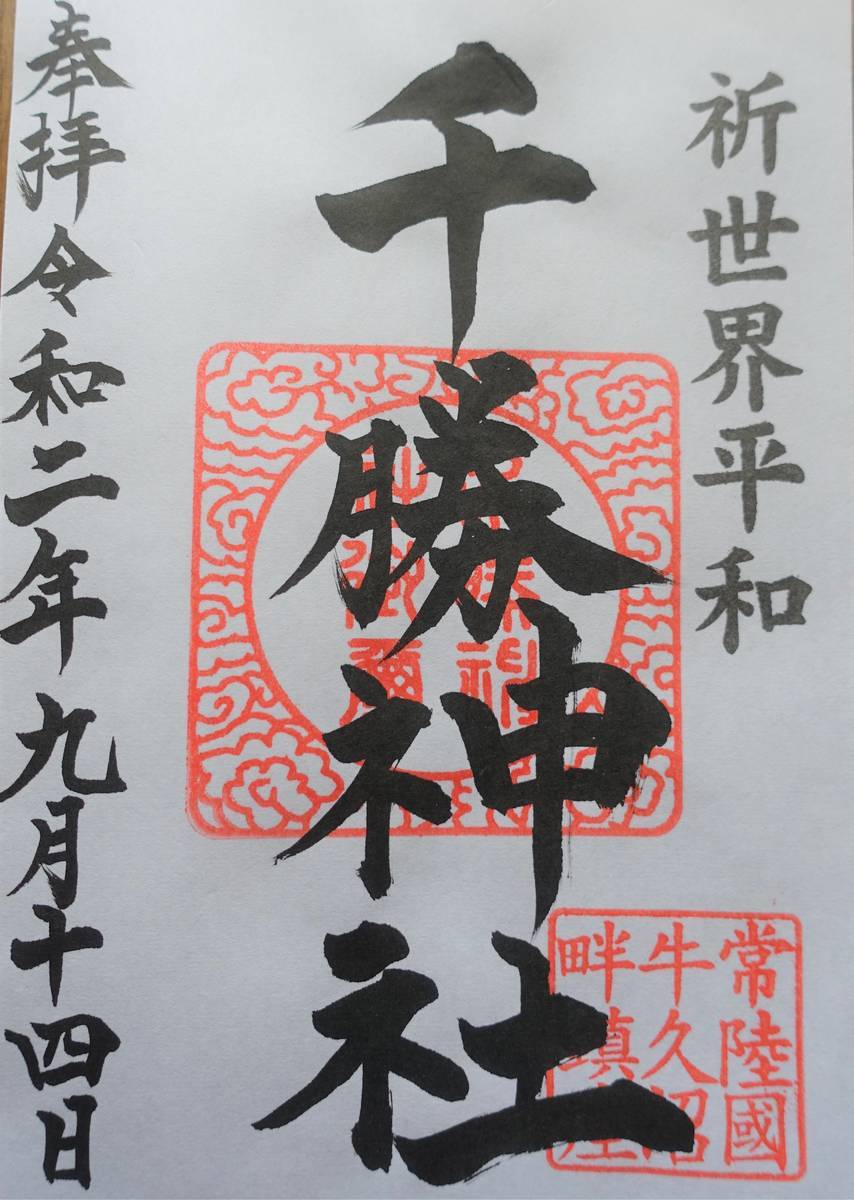 祈世界平和
千勝神社
常陸國
牛久沼
畔鎮座
奉拝令和二年九月十四日